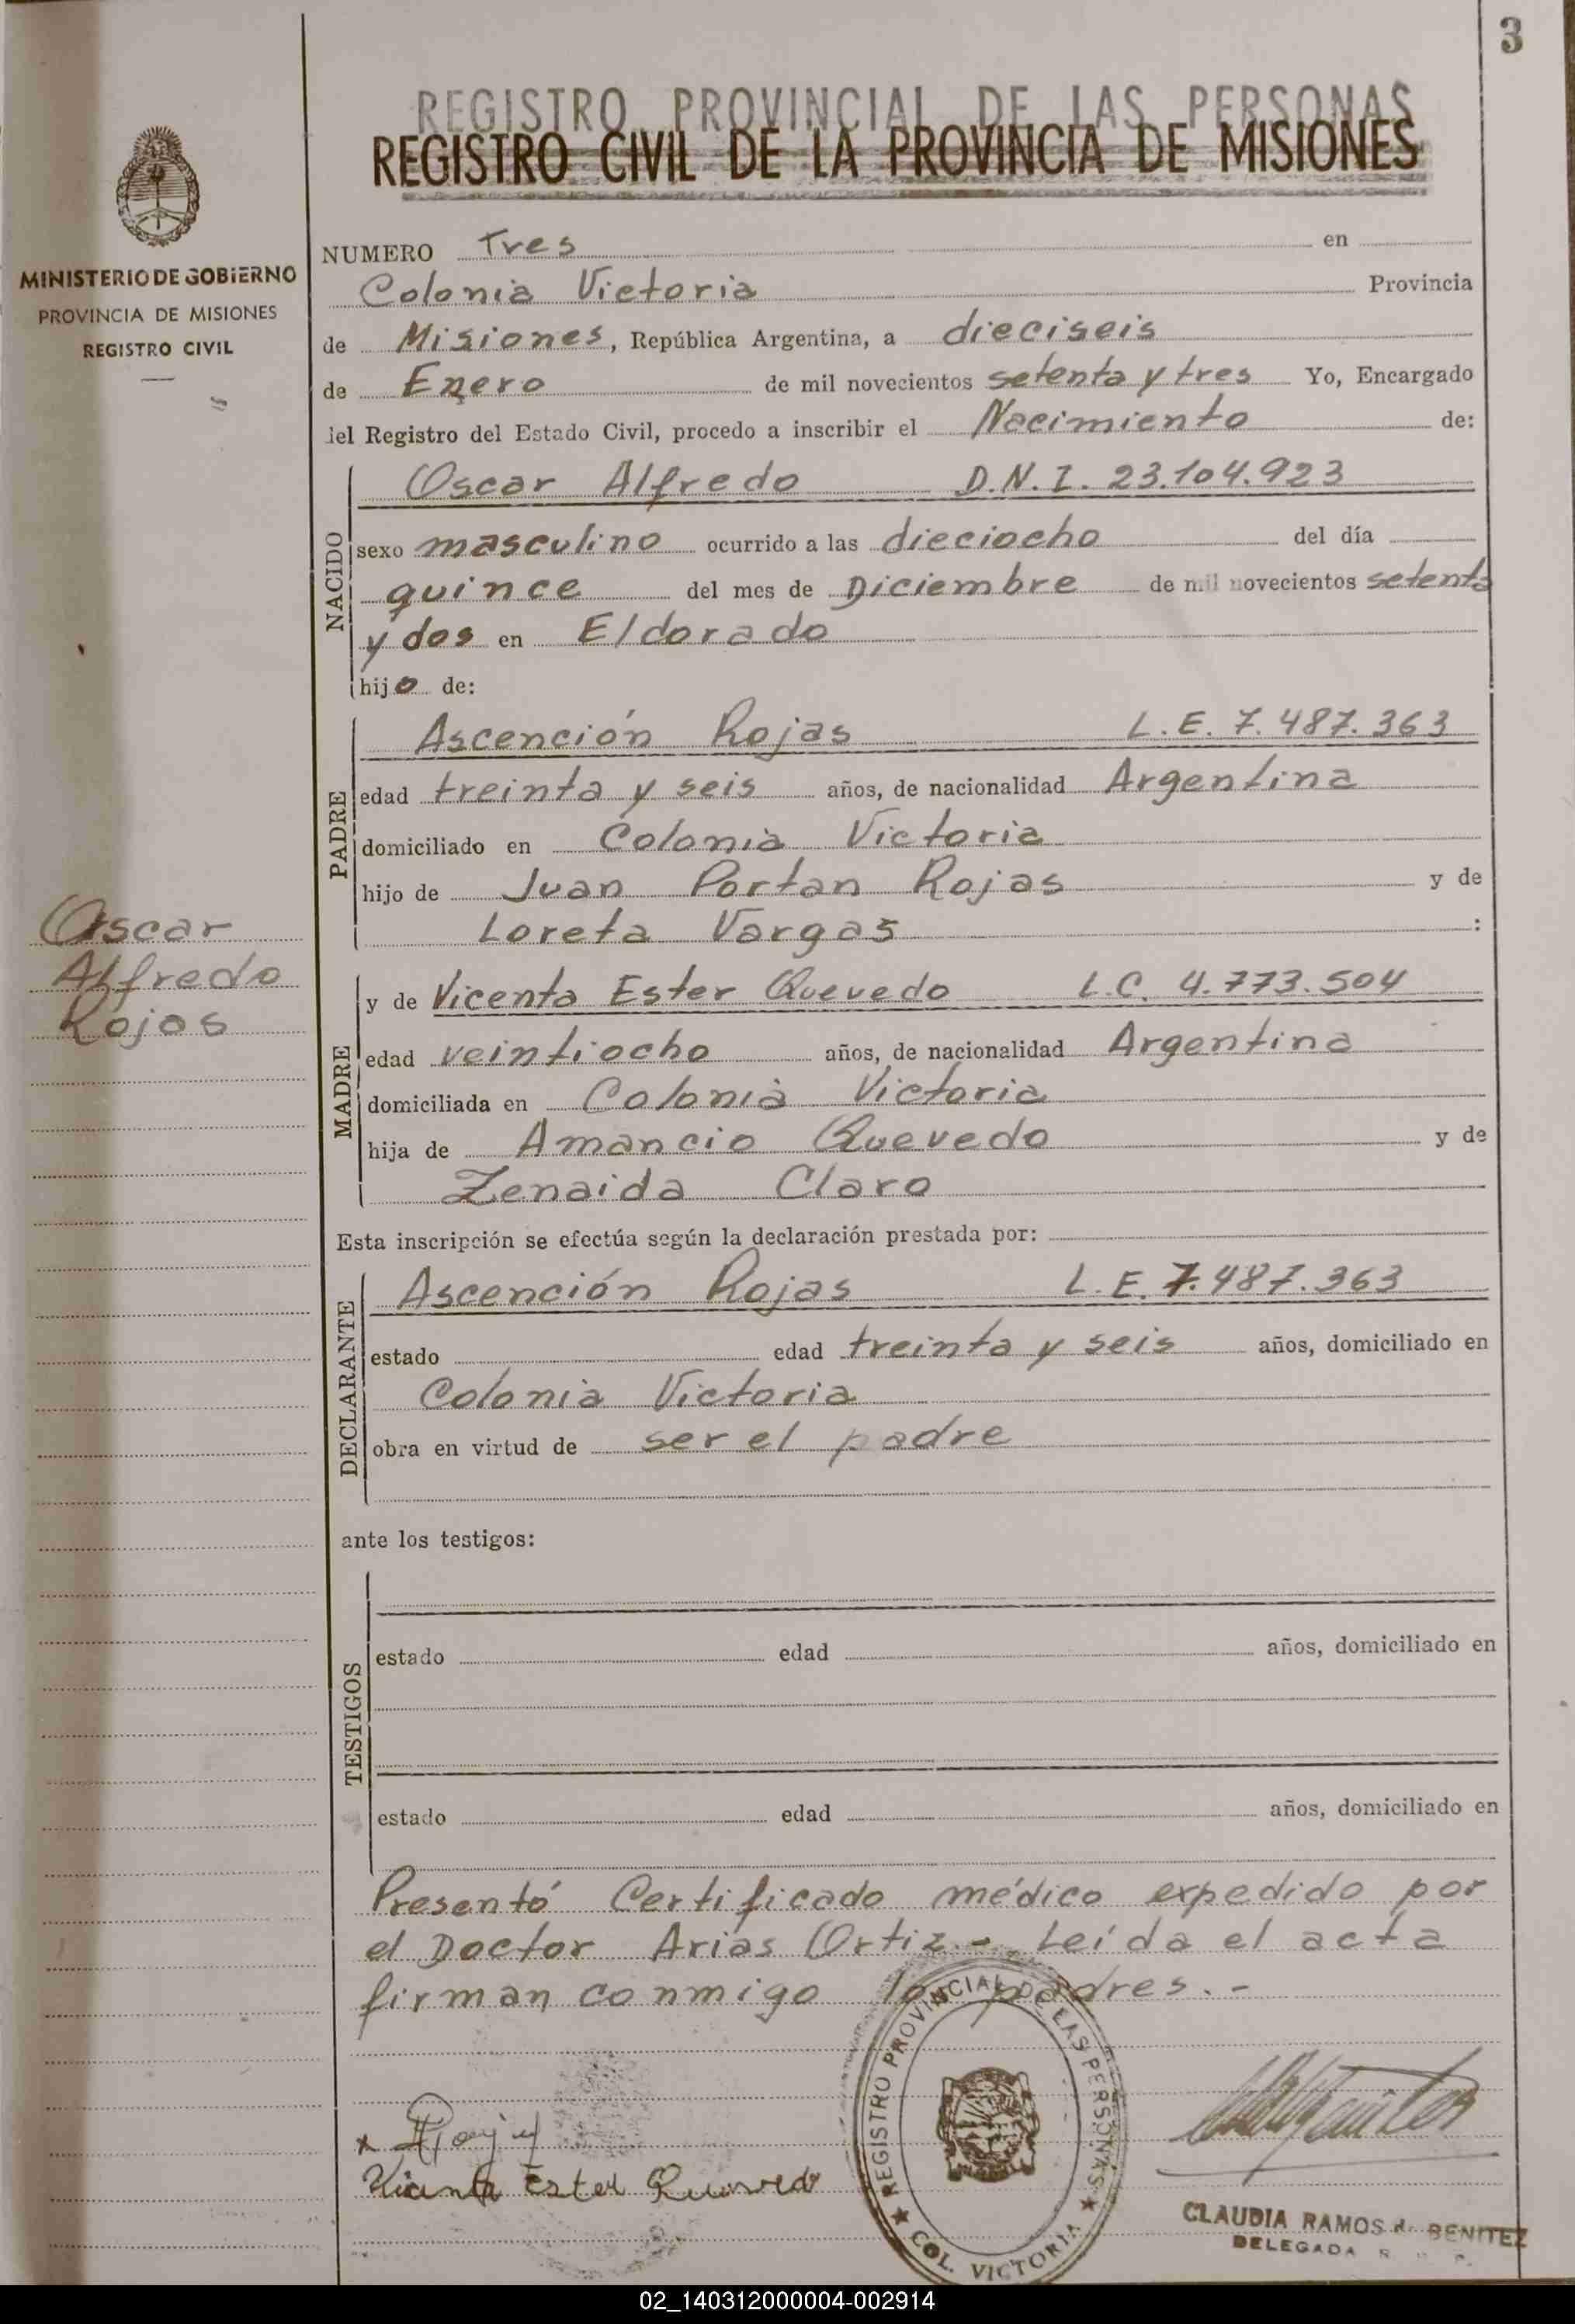 3
REGISTRO PROVINCIAL DE LAS PERSONAS
REGISTRO CIVIL DE LA PROVINCIA DE MISIONES
MINISTERIO DE GOBIERNO
PROVINCIA DE MISIONES
REGISTRO CIVIL
NUMERO Tres en
Colonia Victoria Provincia
de Misiones, República Argentina, a dieciseis
de Enero de mil novecientos setenta y tres Yo, Encargado
del Registro del Estado Civil, procedo a inscribir el Nacimiento de:
NACIDO
Oscar Alfredo D.N.I. 23.104.923
sexo masculino ocurrido a las dieciocho del día
quince del mes de Diciembre de mil novecientos setenta
y dos en Eldorado
hijo de:
PADRE
Ascención Rojas L.E. 7.487.363
edad treinta y seis años, de nacionalidad Argentina
domiciliado en Colonia Victoria
hijo de Juan Portan Rojas y de
Loreta Vargas :
Oscar
Alfredo
Rojas
MADRE
y de Vicenta Ester Quevedo L.C. 4.773.504
edad veintiocho años, de nacionalidad Argentina
domiciliada en Colonia Victoria
hija de Amancio Quevedo y de
Zenaida Claro
Esta inscripción se efectúa según la declaración prestada por:
DECLARANTE
Ascención Rojas L.E. 7.487.363
estado edad treinta y seis años, domiciliado en
Colonia Victoria
obra en virtud de ser el padre
ante los testigos:
TESTIGOS
estado edad años, domiciliado en
estado edad años, domiciliado en
Presentó Certificado médico expedido por
el Doctor Arias Ortiz.- Leída el acta
firman conmigo los padres.-
REGISTRO PROVINCIAL DE LAS PERSONAS
★ COL. VICTORIA ★
Vicenta Ester Quevedo
CLAUDIA RAMOS de BENITEZ
DELEGADA R. P.
02_140312000004-002914